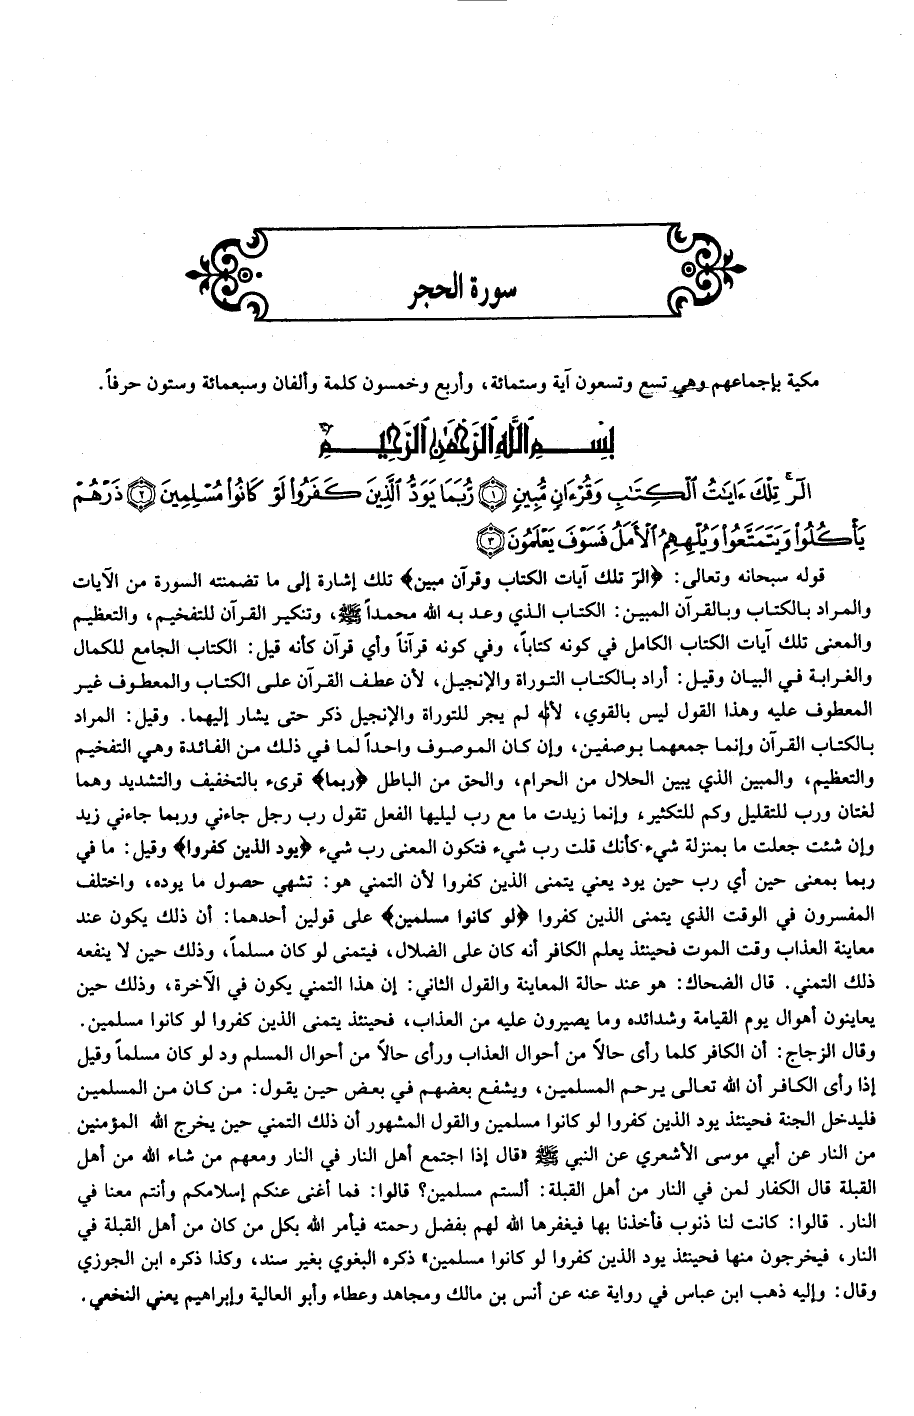 سورة الحجر
مكية بإجماعهم وهي تسع وتسعون آية وستمائة، وأربع وخمسون كلمة وألفان وسبعمائة وستون حرفاً.
بِسْمِ اللَّهِ الرَّحْمَٰنِ الرَّحِيمِ
الٓرۚ تِلْكَ ءَايَٰتُ ٱلْكِتَٰبِ وَقُرْءَانٍ مُّبِينٍ ﴿١﴾ رُّبَمَا يَوَدُّ ٱلَّذِينَ كَفَرُوا۟ لَوْ كَانُوا۟ مُسْلِمِينَ ﴿٢﴾ ذَرْهُمْ
يَأْكُلُوا۟ وَيَتَمَتَّعُوا۟ وَيُلْهِهِمُ ٱلْأَمَلُ فَسَوْفَ يَعْلَمُونَ ﴿٣﴾
قوله سبحانه وتعالى: ﴿الرّ تلك آيات الكتاب وقرآن مبين﴾ تلك إشارة إلى ما تضمنته السورة من الآيات
والمراد بالكتاب وبالقرآن المبين: الكتاب الذي وعد به الله محمداً ﷺ، وتنكير القرآن للتفخيم، والتعظيم
والمعنى تلك آيات الكتاب الكامل في كونه كتاباً، وفي كونه قرآناً وأي قرآن كأنه قيل: الكتاب الجامع للكمال
والغرابة في البيان وقيل: أراد بالكتاب التوراة والإنجيل، لأن عطف القرآن على الكتاب والمعطوف غير
المعطوف عليه وهذا القول ليس بالقوي، لأنه لم يجر للتوراة والإنجيل ذكر حتى يشار إليهما. وقيل: المراد
بالكتاب القرآن وإنما جمعهما بوصفين، وإن كان الموصوف واحداً لما في ذلك من الفائدة وهي التفخيم
والتعظيم، والمبين الذي يبين الحلال من الحرام، والحق من الباطل ﴿ربما﴾ قرىء بالتخفيف والتشديد وهما
لغتان ورب للتقليل وكم للتكثير، وإنما زيدت ما مع رب ليليها الفعل تقول رب رجل جاءني وربما جاءني زيد
وإن شئت جعلت ما بمنزلة شيء كأنك قلت رب شيء فتكون المعنى رب شيء ﴿يود الذين كفروا﴾ وقيل: ما في
ربما بمعنى حين أي رب حين يود يعني يتمنى الذين كفروا لأن التمني هو: تشهي حصول ما يوده، واختلف
المفسرون في الوقت الذي يتمنى الذين كفروا ﴿لو كانوا مسلمين﴾ على قولين أحدهما: أن ذلك يكون عند
معاينة العذاب وقت الموت فحينئذ يعلم الكافر أنه كان على الضلال، فيتمنى لو كان مسلماً، وذلك حين لا ينفعه
ذلك التمني. قال الضحاك: هو عند حالة المعاينة والقول الثاني: إن هذا التمني يكون في الآخرة، وذلك حين
يعاينون أهوال يوم القيامة وشدائده وما يصيرون عليه من العذاب، فحينئذ يتمنى الذين كفروا لو كانوا مسلمين.
وقال الزجاج: أن الكافر كلما رأى حالاً من أحوال العذاب ورأى حالاً من أحوال المسلم ود لو كان مسلماً وقيل
إذا رأى الكافر أن الله تعالى يرحم المسلمين، ويشفع بعضهم في بعض حين يقول: من كان من المسلمين
فليدخل الجنة فحينئذ يود الذين كفروا لو كانوا مسلمين والقول المشهور أن ذلك التمني حين يخرج الله المؤمنين
من النار عن أبي موسى الأشعري عن النبي ﷺ «قال إذا اجتمع أهل النار في النار ومعهم من شاء الله من أهل
القبلة قال الكفار لمن في النار من أهل القبلة: ألستم مسلمين؟ قالوا: فما أغنى عنكم إسلامكم وأنتم معنا في
النار. قالوا: كانت لنا ذنوب فأخذنا بها فيغفرها الله لهم بفضل رحمته فيأمر الله بكل من كان من أهل القبلة في
النار، فيخرجون منها فحينئذ يود الذين كفروا لو كانوا مسلمين» ذكره البغوي بغير سند، وكذا ذكره ابن الجوزي
وقال: وإليه ذهب ابن عباس في رواية عنه عن أنس بن مالك ومجاهد وعطاء وأبو العالية وإبراهيم يعني النخعي.